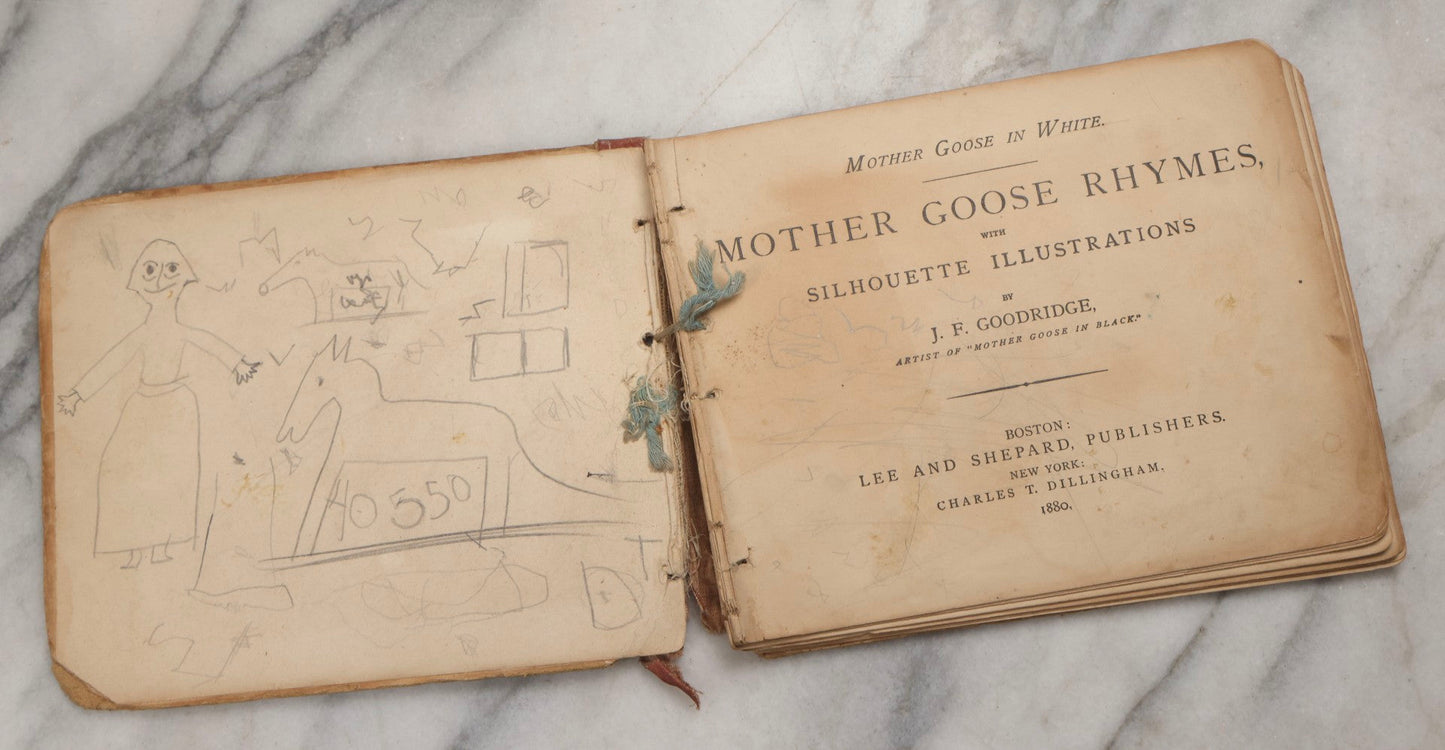 40 550
MOTHER GOOSE IN WHITE.
MOTHER GOOSE RHYMES,
WITH
SILHOUETTE ILLUSTRATIONS
BY
J. F. GOODRIDGE,
ARTIST OF "MOTHER GOOSE IN BLACK."
BOSTON:
LEE AND SHEPARD, PUBLISHERS.
NEW YORK:
CHARLES T. DILLINGHAM.
1880.